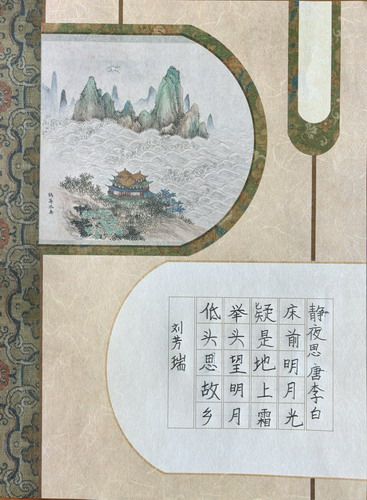 静夜思 唐李白
床前明月光
疑是地上霜
举头望明月
低头思故乡
刘芳瑞